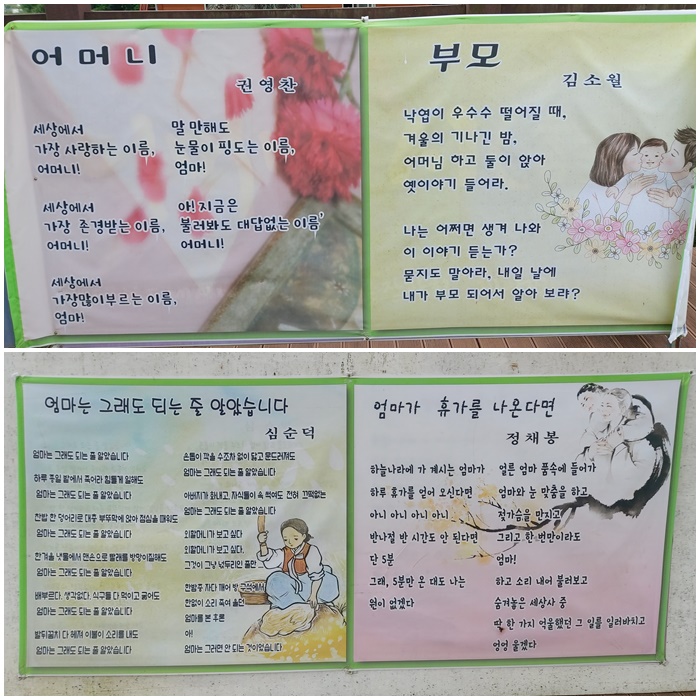 어머니
권영찬
세상에서
가장 사랑하는 이름,
어머니!
세상에서
가장 존경받는 이름,
어머니!
세상에서
가장많이부르는 이름,
엄마!
말 만해도
눈물이 핑도는 이름,
엄마!
아! 지금은
불러봐도 대답없는 이름'
어머니!
부모
김소월
낙엽이 우수수 떨어질 때,
겨울의 기나긴 밤,
어머님 하고 둘이 앉아
옛이야기 들어라.
나는 어쩌면 생겨 나와
이 이야기 듣는가?
묻지도 말아라, 내일 날에
내가 부모 되어서 알아 보랴?
엄마는 그래도 되는 줄 알았습니다
심순덕
엄마는 그래도 되는 줄 알았습니다
하루 종일 밭에서 죽어라 힘들게 일해도
엄마는 그래도 되는 줄 알았습니다
찬밥 한 덩어리로 대충 부뚜막에 앉아 점심을 때워도
엄마는 그래도 되는 줄 알았습니다
한겨울 냇물에서 맨손으로 빨래를 방망이질해도
엄마는 그래도 되는 줄 알았습니다
배부르다, 생각없다, 식구들 다 먹이고 굶어도
엄마는 그래도 되는 줄 알았습니다
발뒤꿈치 다 헤져 이불이 소리를 내도
엄마는 그래도 되는 줄 알았습니다
손톱이 깍을 수조차 없이 닳고 문드러져도
엄마는 그래도 되는 줄 알았습니다
아버지가 화내고, 자식들이 속 썩여도 전혀 끄떡없는
엄마는 그래도 되는 줄 알았습니다
외할머니가 보고 싶다
외할머니가 보고 싶다,
그것이 그냥 넋두리인 줄만
한밤중 자다 깨어 방 구석에서
한없이 소리 죽여 울던
엄마를 본 후론
아!
엄마는 그러면 안 되는 것이었습니다
엄마가 휴가를 나온다면
정채봉
하늘나라에 가 계시는 엄마가
하루 휴가를 얻어 오신다면
아니 아니 아니 아니
반나절 반 시간도 안 된다면
단 5분
그래, 5분만 온 대도 나는
원이 없겠다
얼른 엄마 품속에 들어가
엄마와 눈 맞춤을 하고
젖가슴을 만지고
그리고 한 번만이라도
엄마!
하고 소리 내어 불러보고
숨겨놓은 세상사 중
딱 한 가지 억울했던 그 일을 일러바치고
엉엉 울겠다